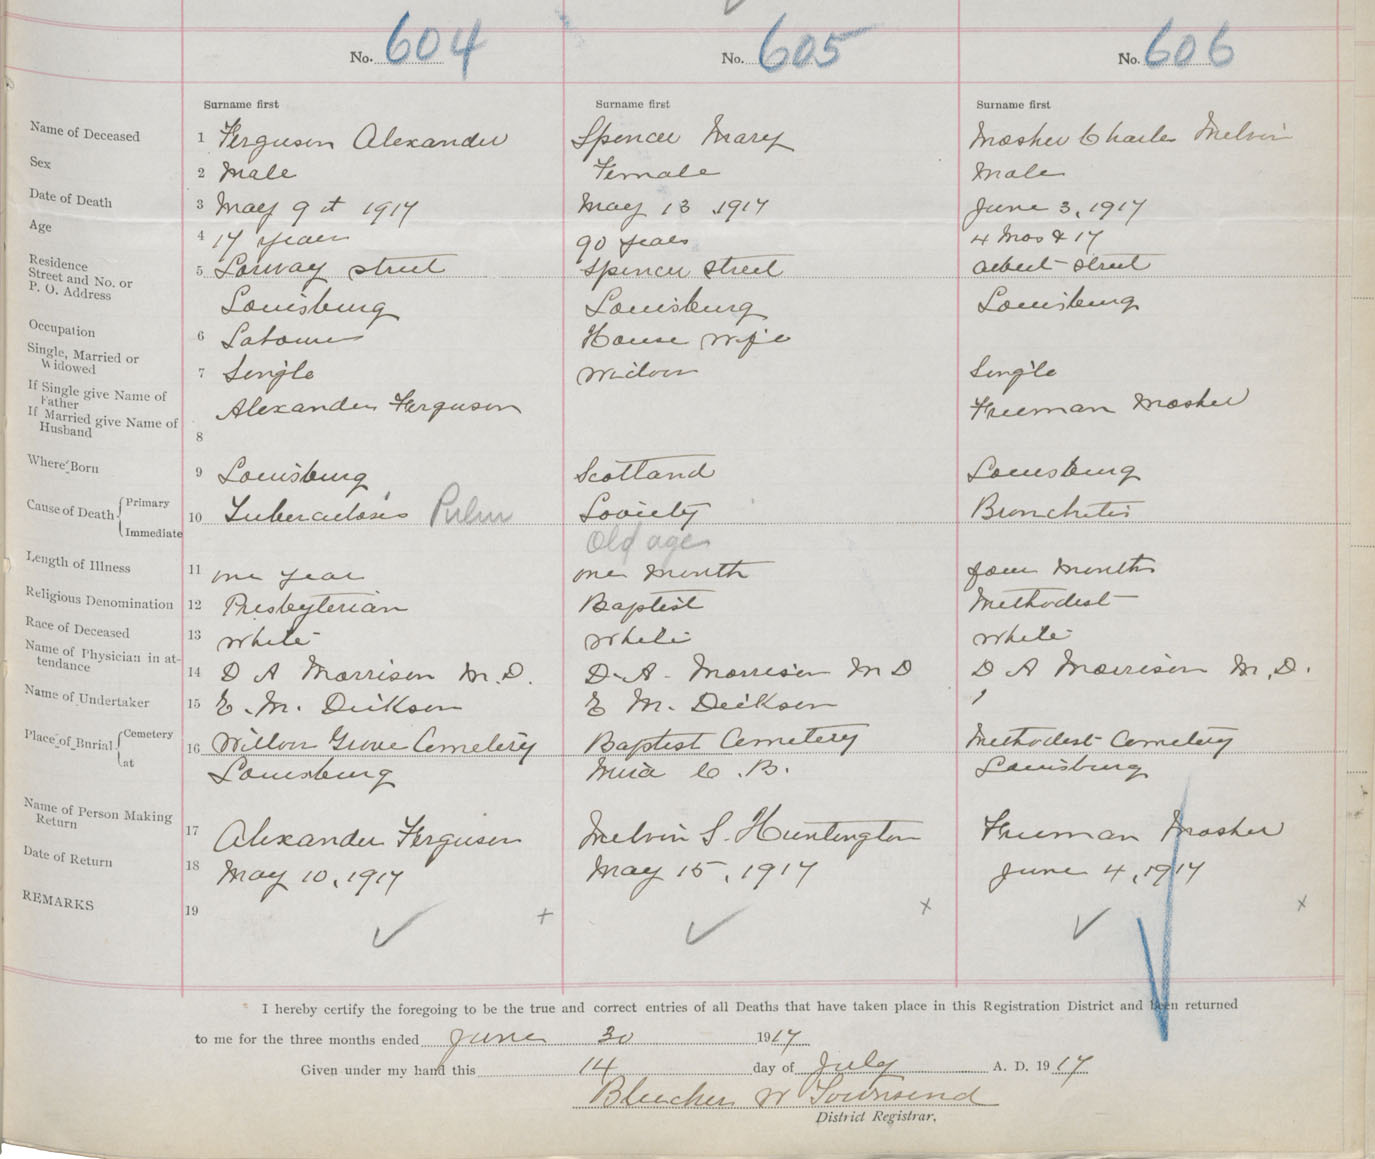 No. 604 No. 605 No. 606
Surname first Surname first Surname first
Name of Deceased 1 Ferguson Alexander Spencer Mary Mosher Charles Melvin
Sex 2 Male Female Male
Date of Death 3 May 9th 1917 May 13, 1917 June 3, 1917
Age 4 17 years 90 years 4 Mos & 17
Residence
Street and No. or 5 Lorway street Spencer Street Albert Street
P. O. Address
Louisburg Louisburg Louisburg
Occupation 6 Labourer House Wife
Single, Married or
Widowed 7 Single Widow Single
If Single give Name of
Father Alexander Ferguson Freeman Mosher
If Married give Name of
Husband 8
Where Born 9 Louisburg Scotland Louisburg
Cause of Death Primary 10 Tuberculosis Pulm Bronchitis
Immediate Old age
Length of Illness 11 one year one Month four Months
Religious Denomination 12 Presbyterian Baptist Methodist
Race of Deceased 13 White White White
Name of Physician in at-
tendance 14 D A Morrison M.D. D. A. Morrison M D D A Morrison M.D.
Name of Undertaker 15 E. M. Dickson E M. Dickson
Place of Burial Cemetery 16 Willow Grove Cemetery Baptist Cemetery Methodist Cemetery
at Louisburg Mira C.B. Louisburg
Name of Person Making
Return 17 Alexander Ferguson Melvin S. Huntington Freeman Mosher
Date of Return 18 May 10, 1917 May 15, 1917 June 4, 1917
REMARKS 19
I hereby certify the foregoing to be the true and correct entries of all Deaths that have taken place in this Registration District and been returned
to me for the three months ended June 30 1917
Given under my hand this 14 day of July A. D. 1917
W Townsend
District Registrar.